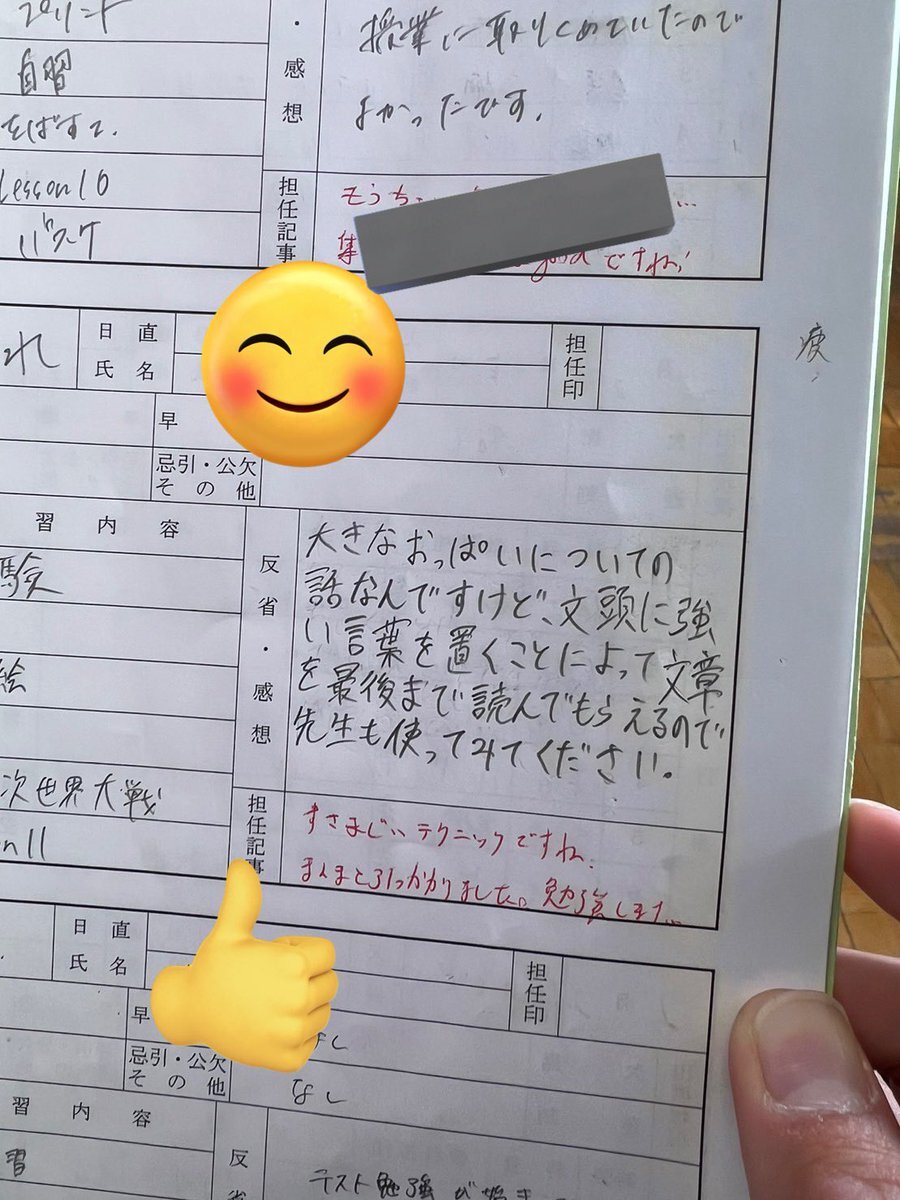 プリント
・感想
授業に取りくめていたので
よかったです。
自習
をばすて.
Lesson10
バスケ
担任記事
もうち
集
goodですね!
れ
日直
氏名
担任印
疲
早
忌引・公欠
その他
習内容
験
絵
次世界大戦
n11
反省・感想
大きなおっぱいについての
話なんですけど、文頭に強
い言葉を置くことによって文章
を最後まで読んでもらえるので
先生も使ってみてください。
担任記事
すさまじいテクニックですね.
まんまと引っかかりました。勉強します...
日直
氏名
担任印
早
忌引・公欠
その他
なし
習内容
習
反省
テスト勉強が